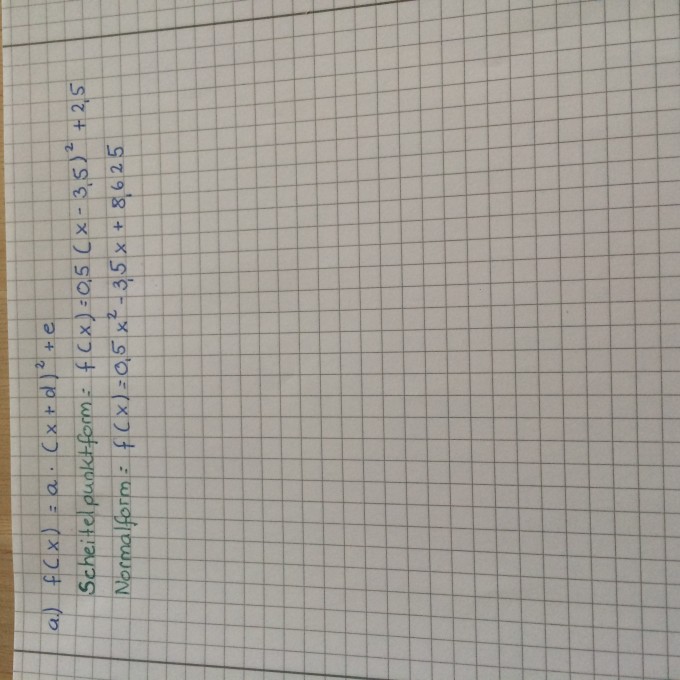 a.) f(x) = a · (x + d)² + e
Scheitelpunktform = f(x) = 0,5 (x - 3,5)² + 2,5
Normalform = f(x) = 0,5 x² - 3,5 x + 8,625